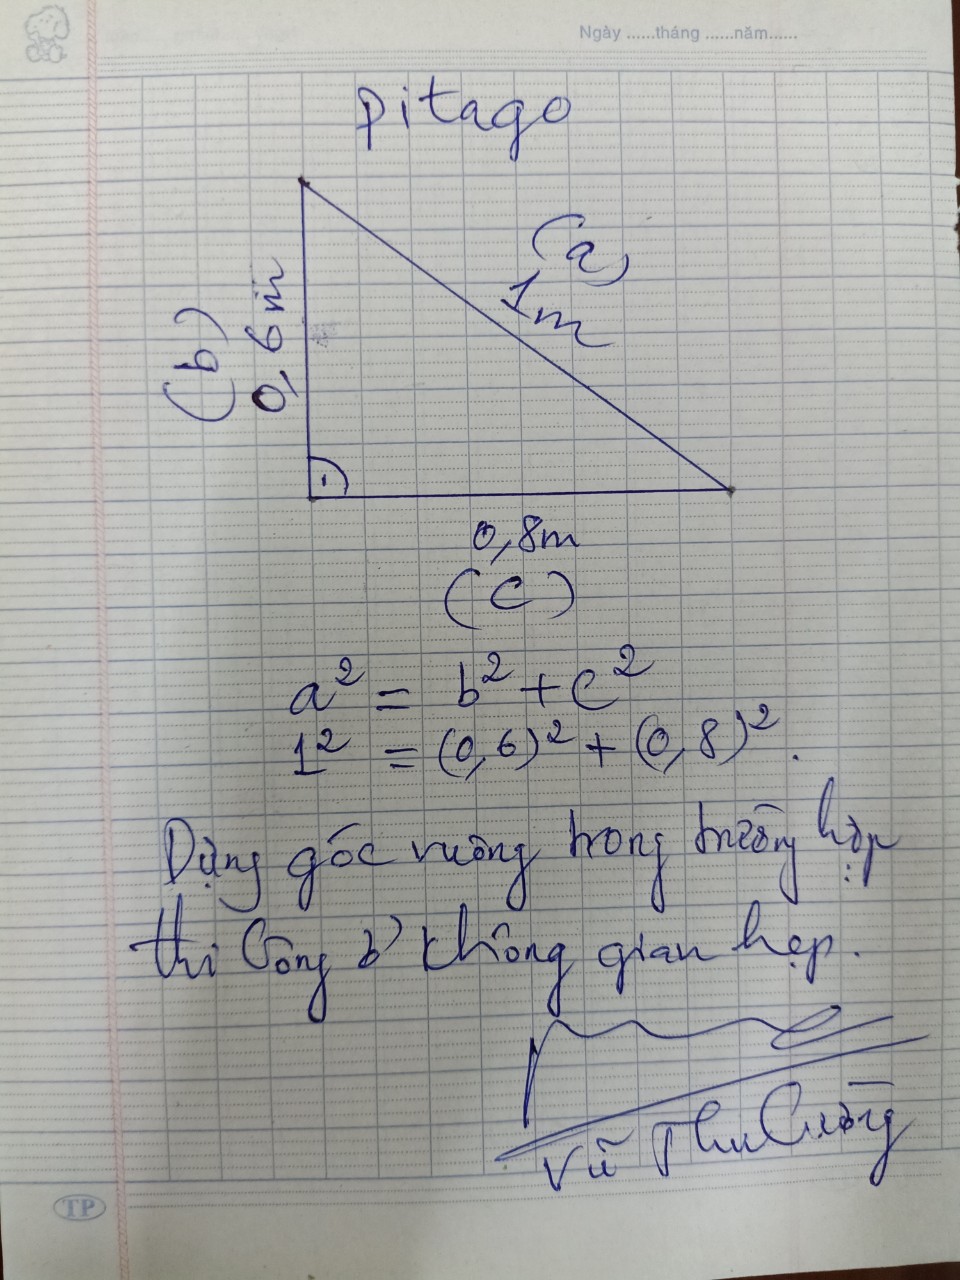 Ngày ......tháng ......năm......
pitago
(a)
1m
(b)
0,6m
0,8m
(c)
a² = b² + c²
1² = (0,6)² + (0,8)².
Dựng góc vuông trong trường hợp
thi công ở không gian hẹp.
Vũ Thu Cường
TP